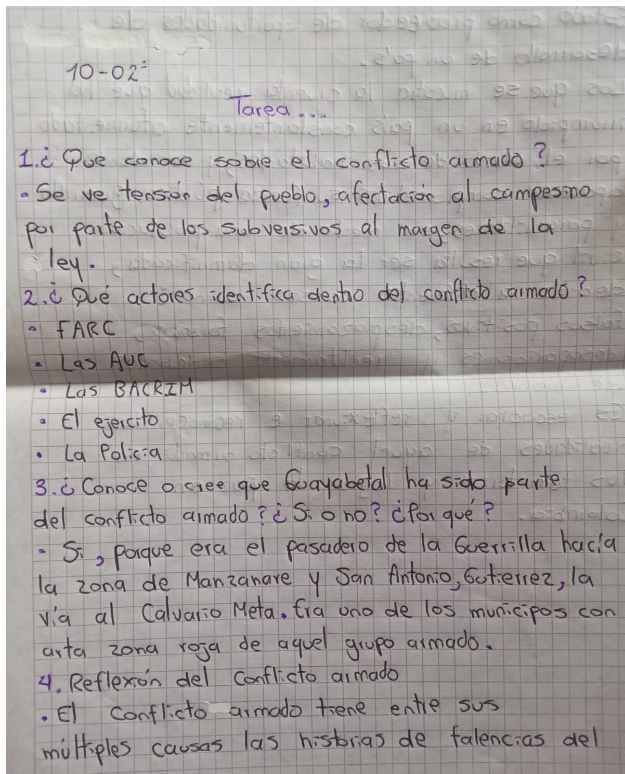 10-02=
Tarea...
1.¿ Que conoce sobre el conflicto armado?
• Se ve tensión del pueblo, afectación al campesino
por parte de los subversivos al margen de la
ley.
2.¿ Qué actores identifica dentro del conflicto armado?
• FARC
• Las AUC
• Las BACRIM
• El ejercito
• La Policia
3.¿ Conoce o cree que Guayabetal ha sido parte
del conflicto armado? ¿Si o no? ¿por qué?
• Si, porque era el pasadero de la Guerrilla hacia
la zona de Manzanare y San Antonio, Gutierrez, la
vía al Calvario Meta. Era uno de los municipos con
arta zona roja de aquel grupo armado.
4. Reflexión del Conflicto armado
• El conflicto armado tiene entre sus
múltiples causas las historias de falencias del